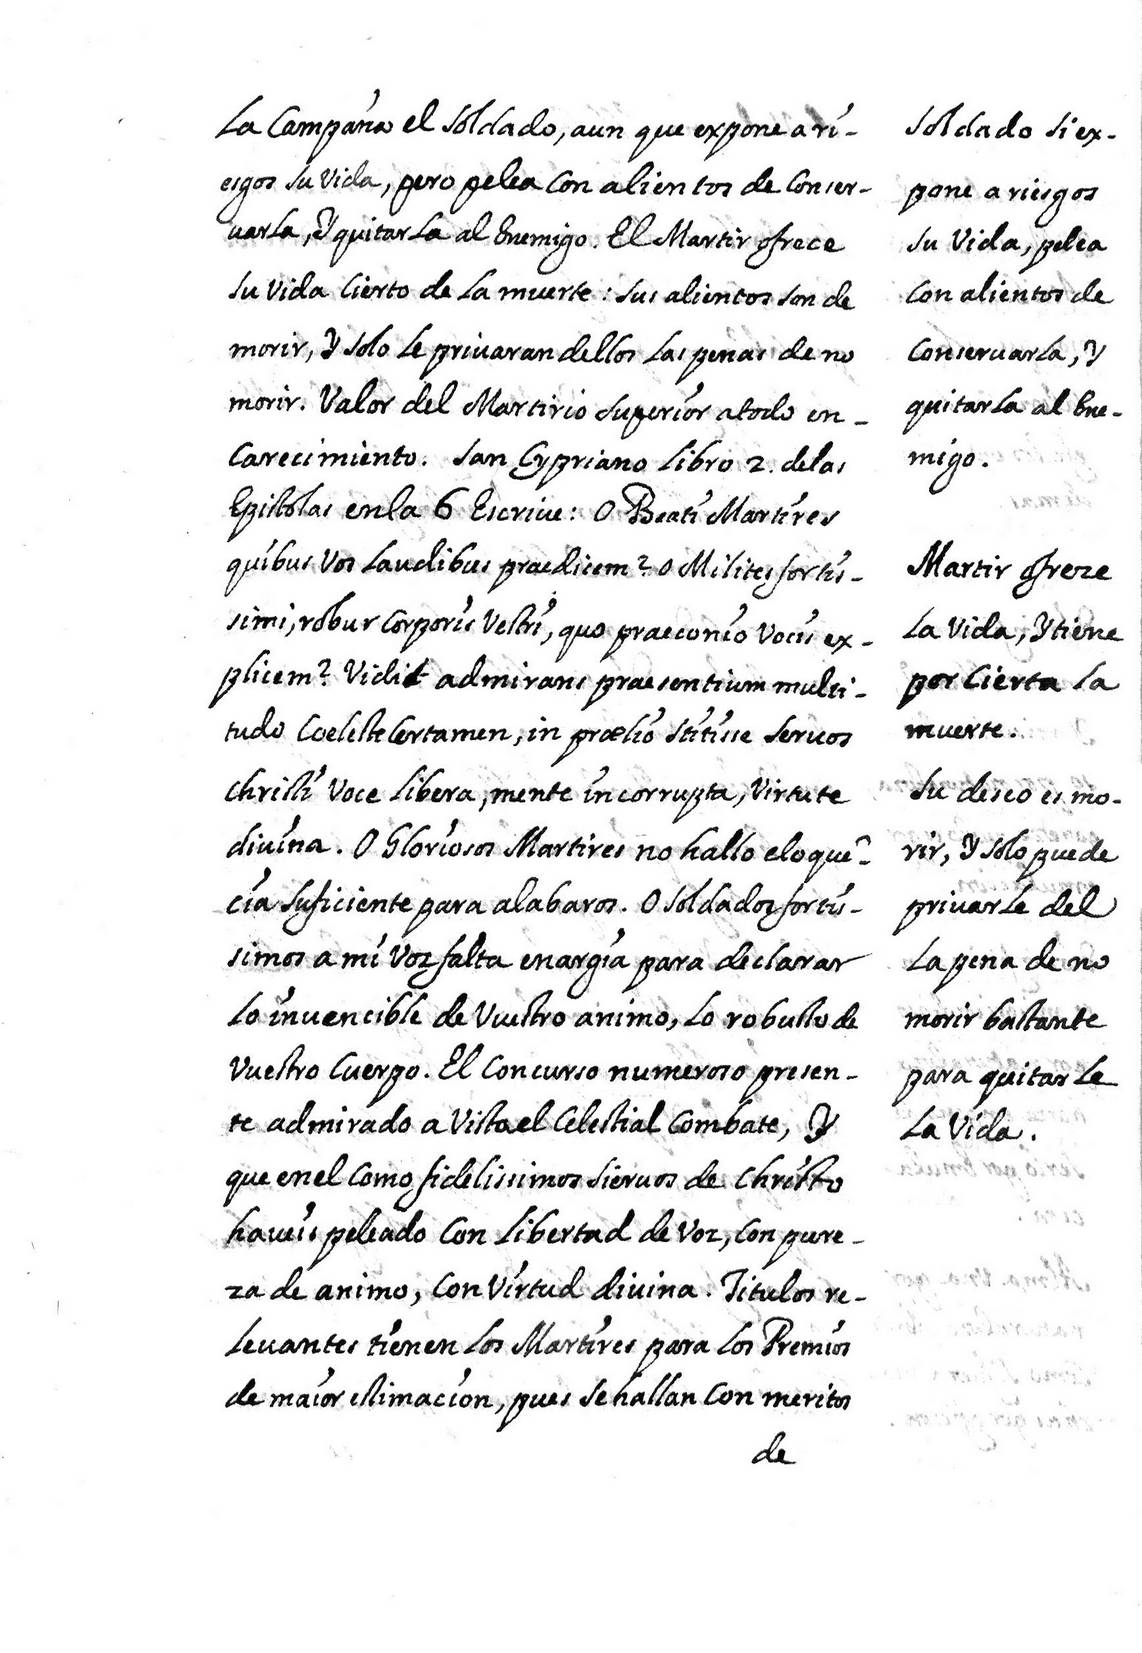 la Campaña el soldado, aun que expone a ri-
esgos su vida, pero pelea con alientos de conser-
uarla, y quitarla al Enemigo. El Martir ofrece
su vida cierto de la muerte: sus alientos son de
morir, y solo le priuaran dellos las penas de no
morir. Valor del Martirio superior a todo en-
carecimiento. San Cypriano libro 2. de las
Epistolas en la 6 Escriue: O Beati Martires
quibus vos laudibus praedicem? o Milites fortis-
simi, robur corporis vestri, quo praeconio vocis ex-
plicem? Vidit admirans praesentium multi-
tudo coeleste certamen, in prælio stitisse seruos
christi voce libera, mente incorrupta, virtute
diuina. O Gloriosos Martires no hallo eloquẽ-
cia suficiente para alabaros. O soldados fortis-
simos a mi voz falta enargia para declarar
lo inuencible de vuestro animo, lo robusto de
vuestro cuerpo. El concurso numeroso presen-
te admirado a visto el celestial combate, y
que en el como fidelissimos sieruos de christo
haueis peleado con libertad de voz, con pure-
za de animo, con virtud diuina. Titulos re-
leuantes tienen los Martires para los Premios
de maior estimacion, pues se hallan con meritos
de
soldado si ex-
pone a riesgos
su vida, pelea
con alientos de
conseruarla, y
quitarla al Ene-
migo.
Martir ofreze
la vida, y tiene
por cierta la
muerte.
su deseo es mo-
rir, y solo puede
priuarle del
la pena de no
morir bastante
para quitarle
la vida.